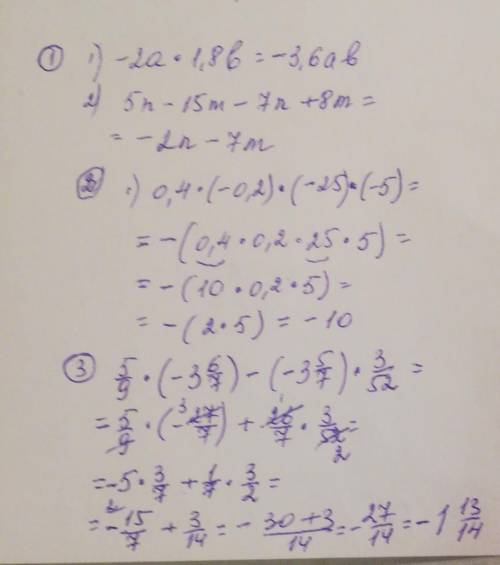 ① 1) -2a · 1,8b = -3,6ab
2) 5n - 15m - 7n + 8m =
= -2n - 7m
② 1) 0,4 · (-0,2) · (-25) · (-5) =
= -(0,4 · 0,2 · 25 · 5) =
= -(10 · 0,2 · 5) =
= -(2 · 5) = -10
③ 5/9 · (-3 6/7) - (-3 5/7) · 3/52 =
= 5/9 · (-27/7) + 26/7 · 3/52 =
= -5 · 3/7 + 1/7 · 3/2 =
= -15/7 + 3/14 = -30+3/14 = -27/14 = -1 13/14